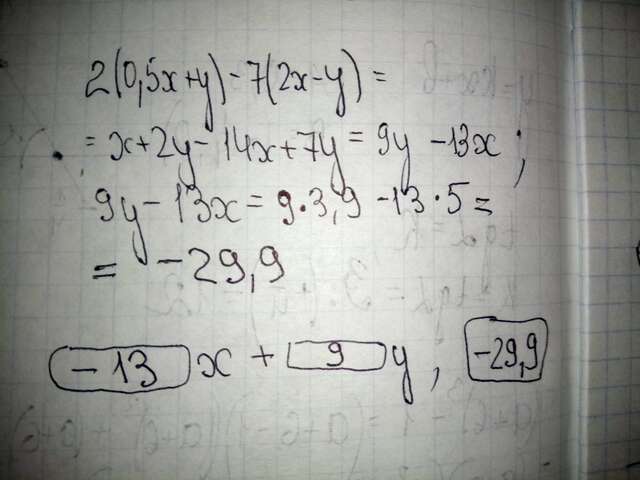 2(0,5x+y)-7(2x-y)=
= x+2y-14x+7y=9y-13x;
9y-13x=9·3,9-13·5=
= -29,9
-13 x + 9 y, -29,9